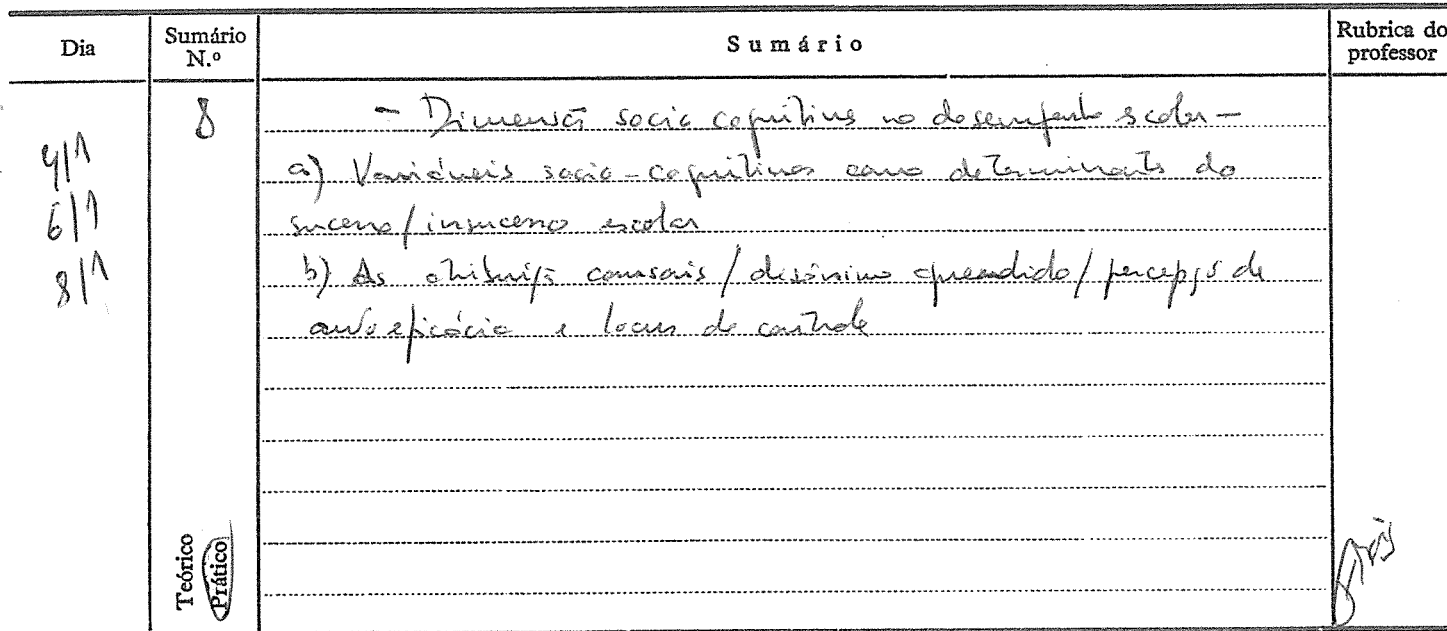 Dia
Sumário N.º
Sumário
Rubrica do professor
4/1
6/1
8/1
8
- Dimensão socio cognitiva no desempenho escolar -
a) Variáveis socio-cognitivas como determinantes do
sucesso/insucesso escolar
b) As atribuições causais / desânimo aprendido / percepção de
auto eficácia e locus de controle
Teórico
Prático